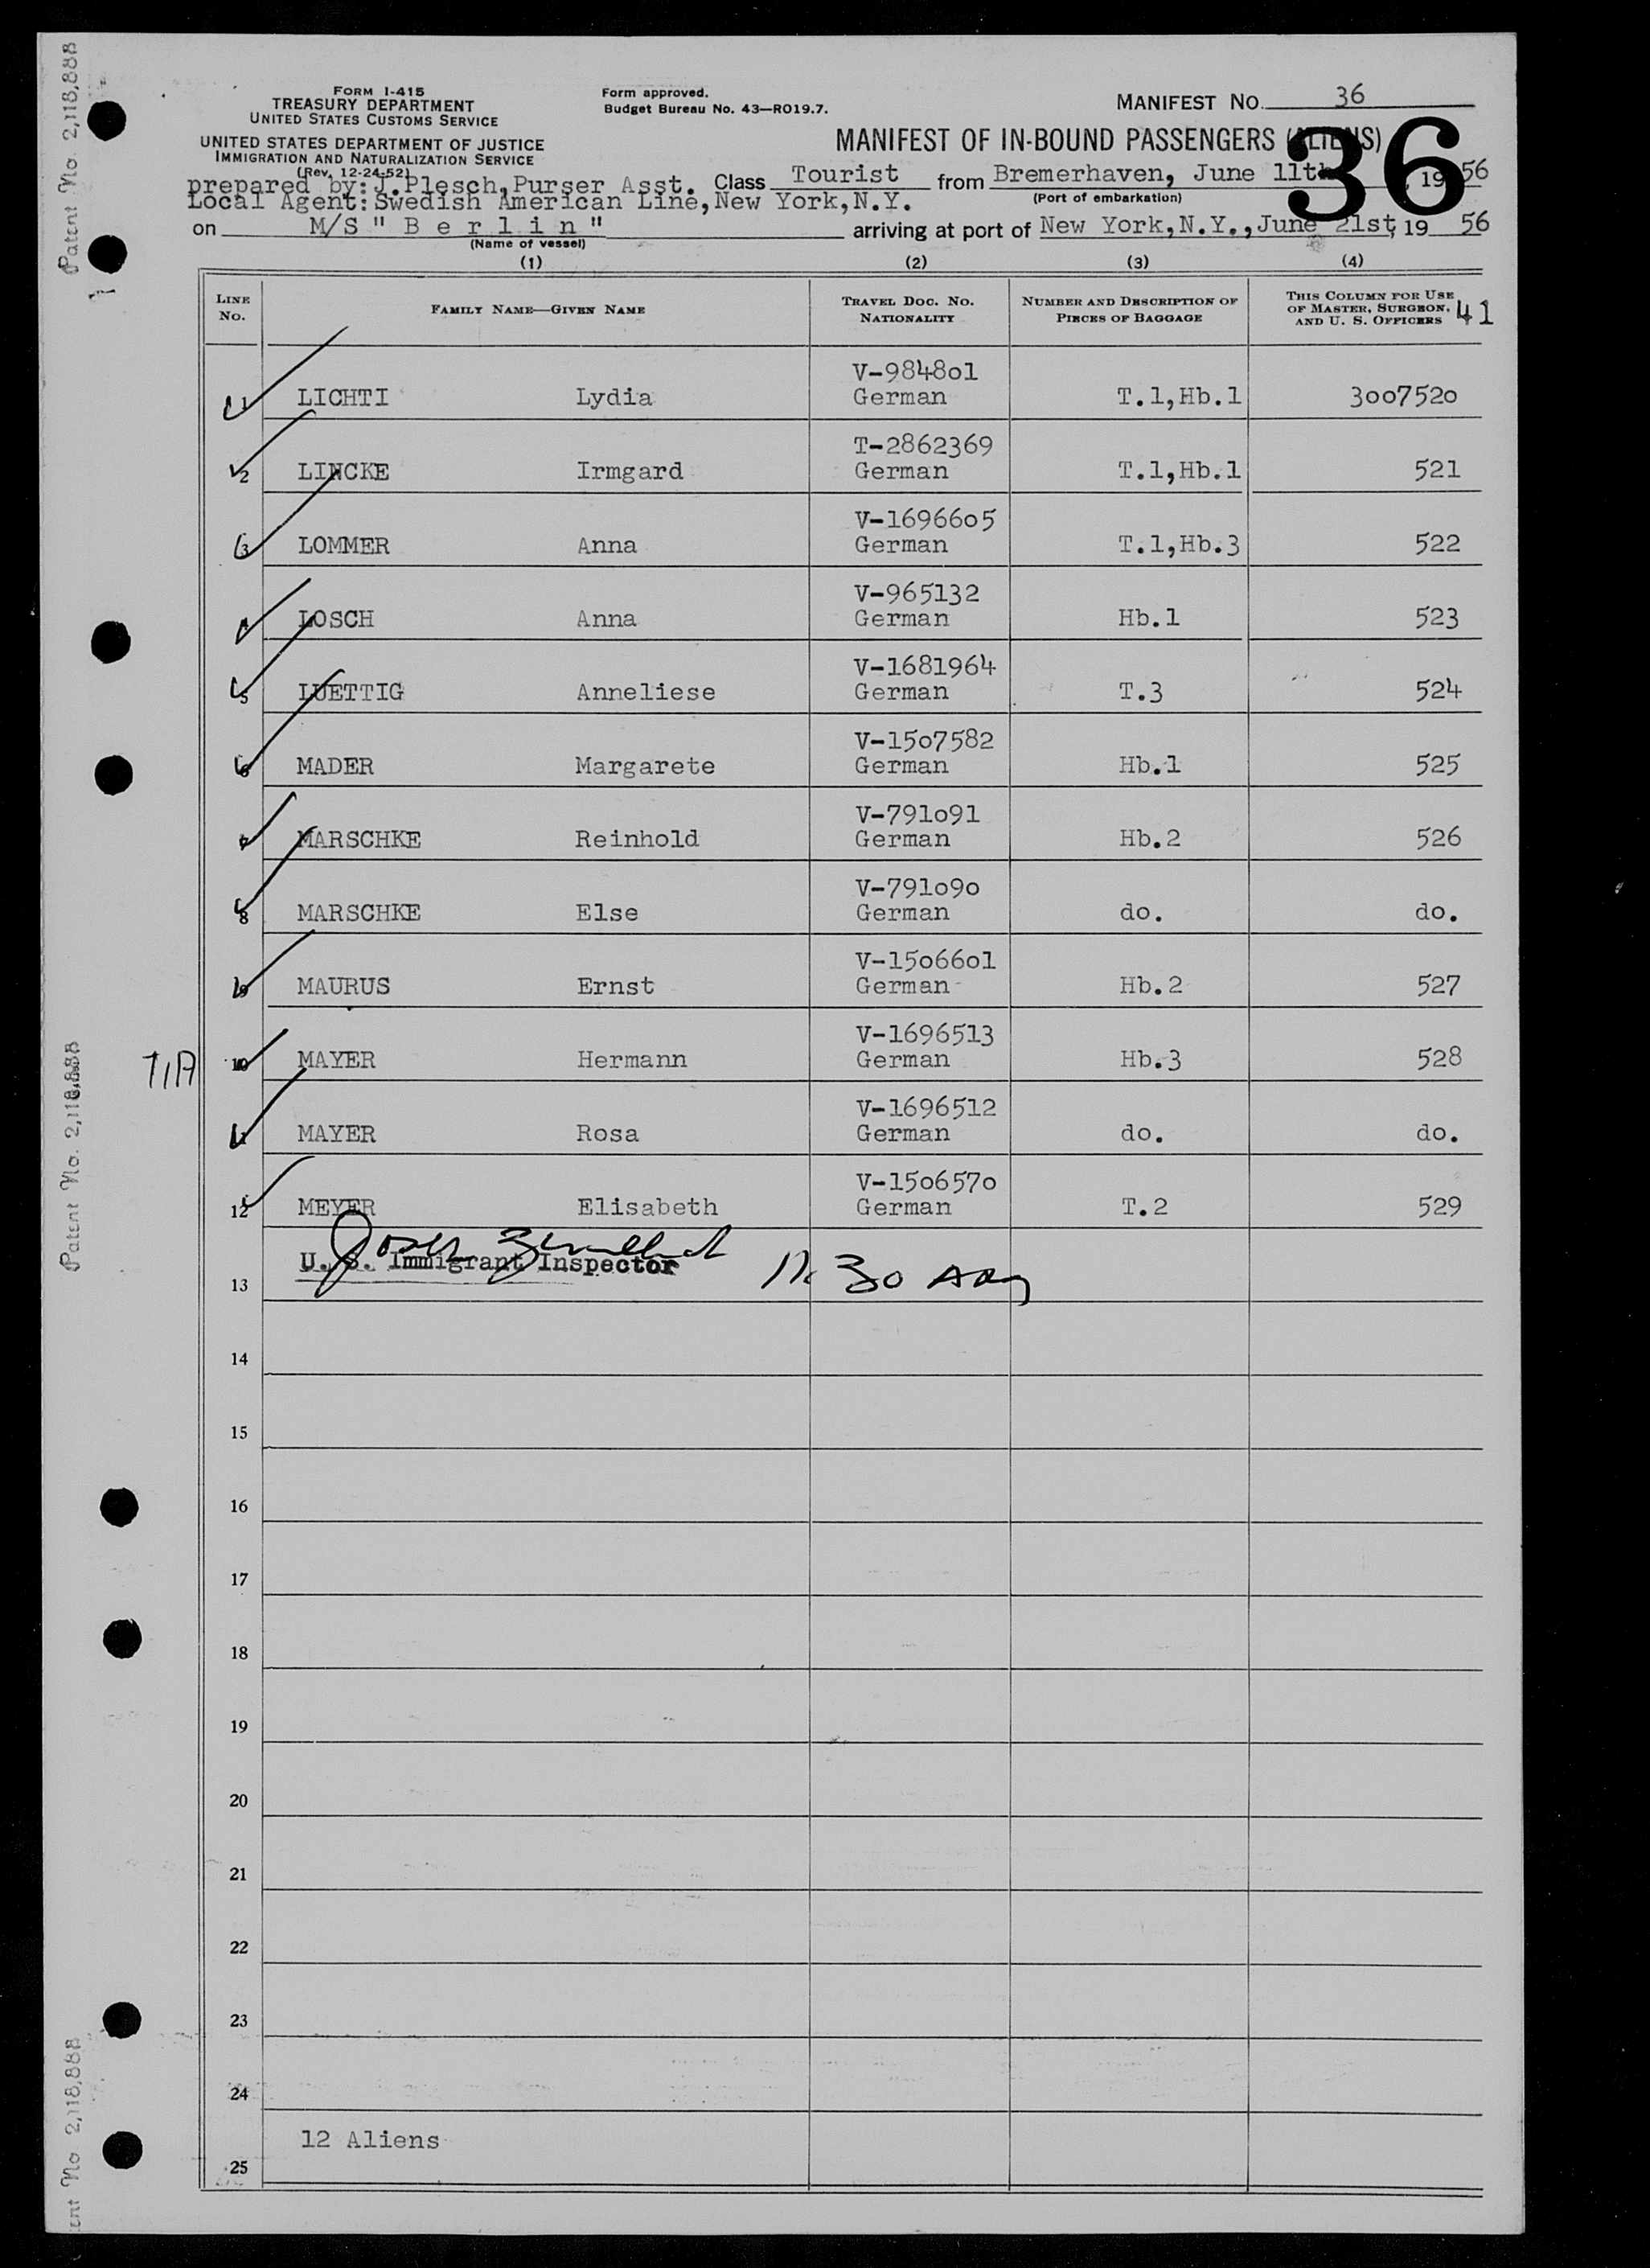 FORM I-415
TREASURY DEPARTMENT
UNITED STATES CUSTOMS SERVICE
UNITED STATES DEPARTMENT OF JUSTICE
IMMIGRATION AND NATURALIZATION SERVICE
(Rev. 12-24-52)
Form approved.
Budget Bureau No. 43—RO19.7.
MANIFEST NO. 36
MANIFEST OF IN-BOUND PASSENGERS (ALIENS)
36
prepared by: J.Plesch, Purser Asst. Class Tourist from Bremerhaven, June 11th, 19 56
Local Agent: Swedish American Line, New York, N.Y. (Port of embarkation)
on M/S " B e r l i n " arriving at port of New York, N.Y., June 21st, 19 56
(Name of vessel)
(1) (2) (3) (4)
LINE No. FAMILY NAME—GIVEN NAME TRAVEL DOC. NO. NATIONALITY NUMBER AND DESCRIPTION OF PIECES OF BAGGAGE THIS COLUMN FOR USE OF MASTER, SURGEON, AND U. S. OFFICERS 41
V-984801
1 LICHTI Lydia German T.1,Hb.1 3007520
T-2862369
2 LINCKE Irmgard German T.1,Hb.1 521
V-1696605
3 LOMMER Anna German T.1,Hb.3 522
V-965132
LOSCH Anna German Hb.1 523
V-1681964
5 LUETTIG Anneliese German T.3 524
V-1507582
6 MADER Margarete German Hb.1 525
V-791091
MARSCHKE Reinhold German Hb.2 526
V-791090
8 MARSCHKE Else German do. do.
V-1506601
9 MAURUS Ernst German Hb.2 527
V-1696513
10 MAYER Hermann German Hb.3 528
V-1696512
MAYER Rosa German do. do.
V-1506570
12 MEYER Elisabeth German T.2 529
U. S. Immigrant Inspector
13
14
15
16
17
18
19
20
21
22
23
24
12 Aliens
25
Patent No. 2,118,888
Patent No. 2,118,888
ent No 2,118,888